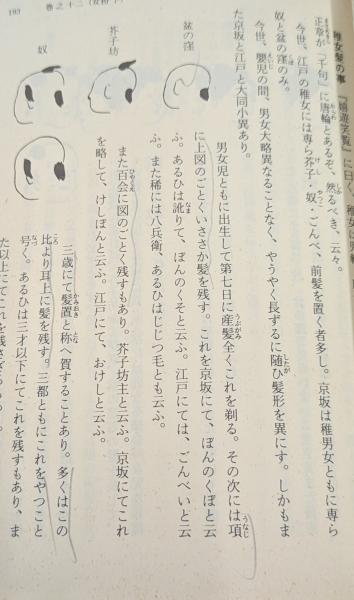 193
巻之十二（女扮下）
稚女髪の事
正章が「千句」に唐輪とあるぞ、然るべき、云々。
今世、江戸の稚女には専ら芥子・奴・ごんべ、前髪を置く者多し。京坂は稚男女ともに専ら
奴と盆の窪のみ。
今世、嬰児の間、男女大略異なることなく、やうやく長ずるに随ひ髪形を異にす。しかもま
た京坂と江戸と大同小異あり。
盆の窪
男女児ともに出生して第七日に産髪全くこれを剃る。その次には項
に上図のごとくいささか髪を残す。これを京坂にて、ぼんのくぼと云
ふ。あるひは訛りて、ぼんのくそと云ふ。江戸にては、ごんべいと云
ふ。また稀には八兵衛、あるひはじじつ毛とも云ふ。
芥子坊
また百会に図のごとく残すもあり。芥子坊主と云ふ。京坂にてこれ
を略して、けしぼんと云ふ。江戸にて、おけしと云ふ。
奴
三歳にて髪置と称へ賀することあり。多くはこの
比より耳上に髪を残す。三都ともにこれをやつこと
号く。あるひは三才以下にてこれを残すもあり、ま
た以上にてこれを残さざる